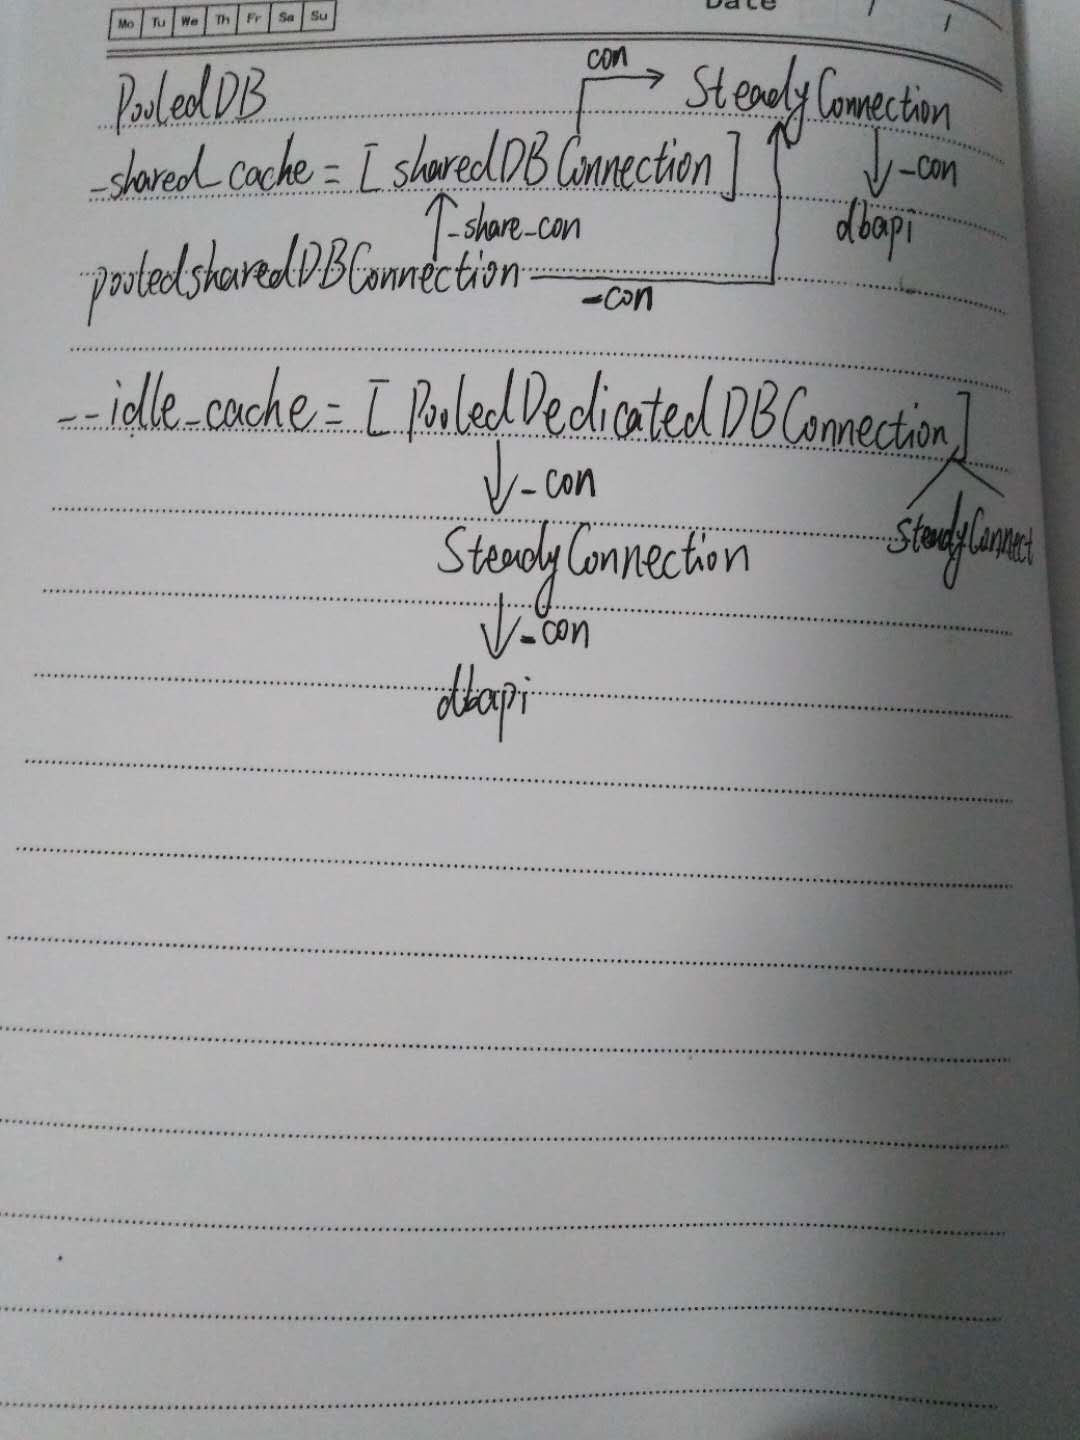 Mo Tu We Th Fr Sa Su
Date / /
PooledDB
con
SteadyConnection
-shared_cache = [sharedDBConnection]
-con
-share-con
dbapi
pooledsharedDBConnection
-con
--idle_cache = [PooledDedicatedDBConnection]
-con
SteadyConnect
SteadyConnection
-con
dbapi